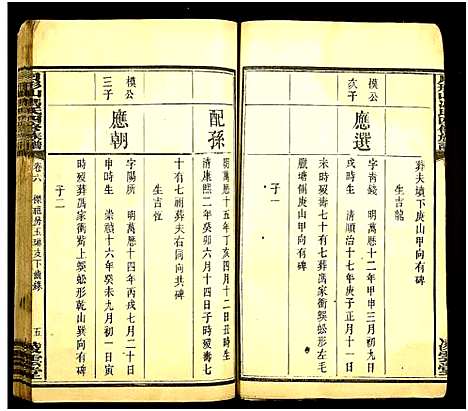 葬夫墳下庚山甲向有碑
生吉龍
模公
六子
應選
字青錢 明萬曆十二年甲申三月初九日
戌時生 清順治十七年庚子正月十一日
未時歿壽七十有七葬萬家衝蜈蚣形左毛
鷹塘側庚山甲向有碑
子一
配孫
明萬曆十五年丁亥四月十二日丑時生
清康熙二年癸卯六月十四日子時歿壽七
十有七祔葬夫右同向共碑
生吉恆
模公
三子
應朝
字陽所 明萬曆十四年丙戌七月二十日
申時生 崇禎十六年癸未九月初一日寅
時歿葬萬家衝墈上蜈蚣形乾山巽向有碑
子二
卷六
五